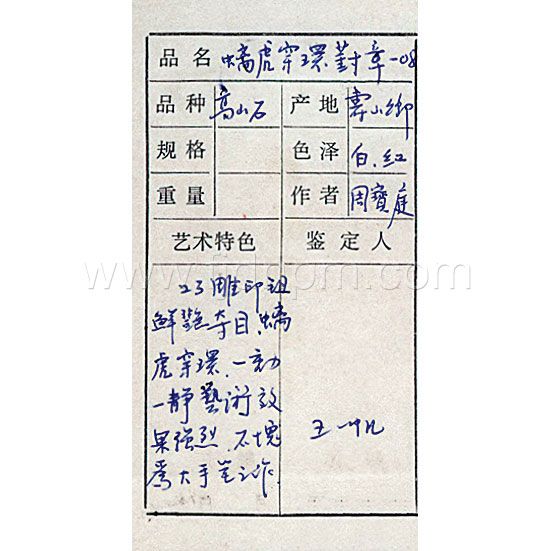 品名 螭虎穿環對章-08
品种 高山石 产地 壽山鄉
规格 色泽 白、红
重量 作者 周寶庭
艺术特色 鉴定人
巧雕印钮
鲜艷夺目、螭
虎穿環、一動
一静藝術效
果强烈、不愧
為大手笔之作.
王一帆
www.fjdnpm.com